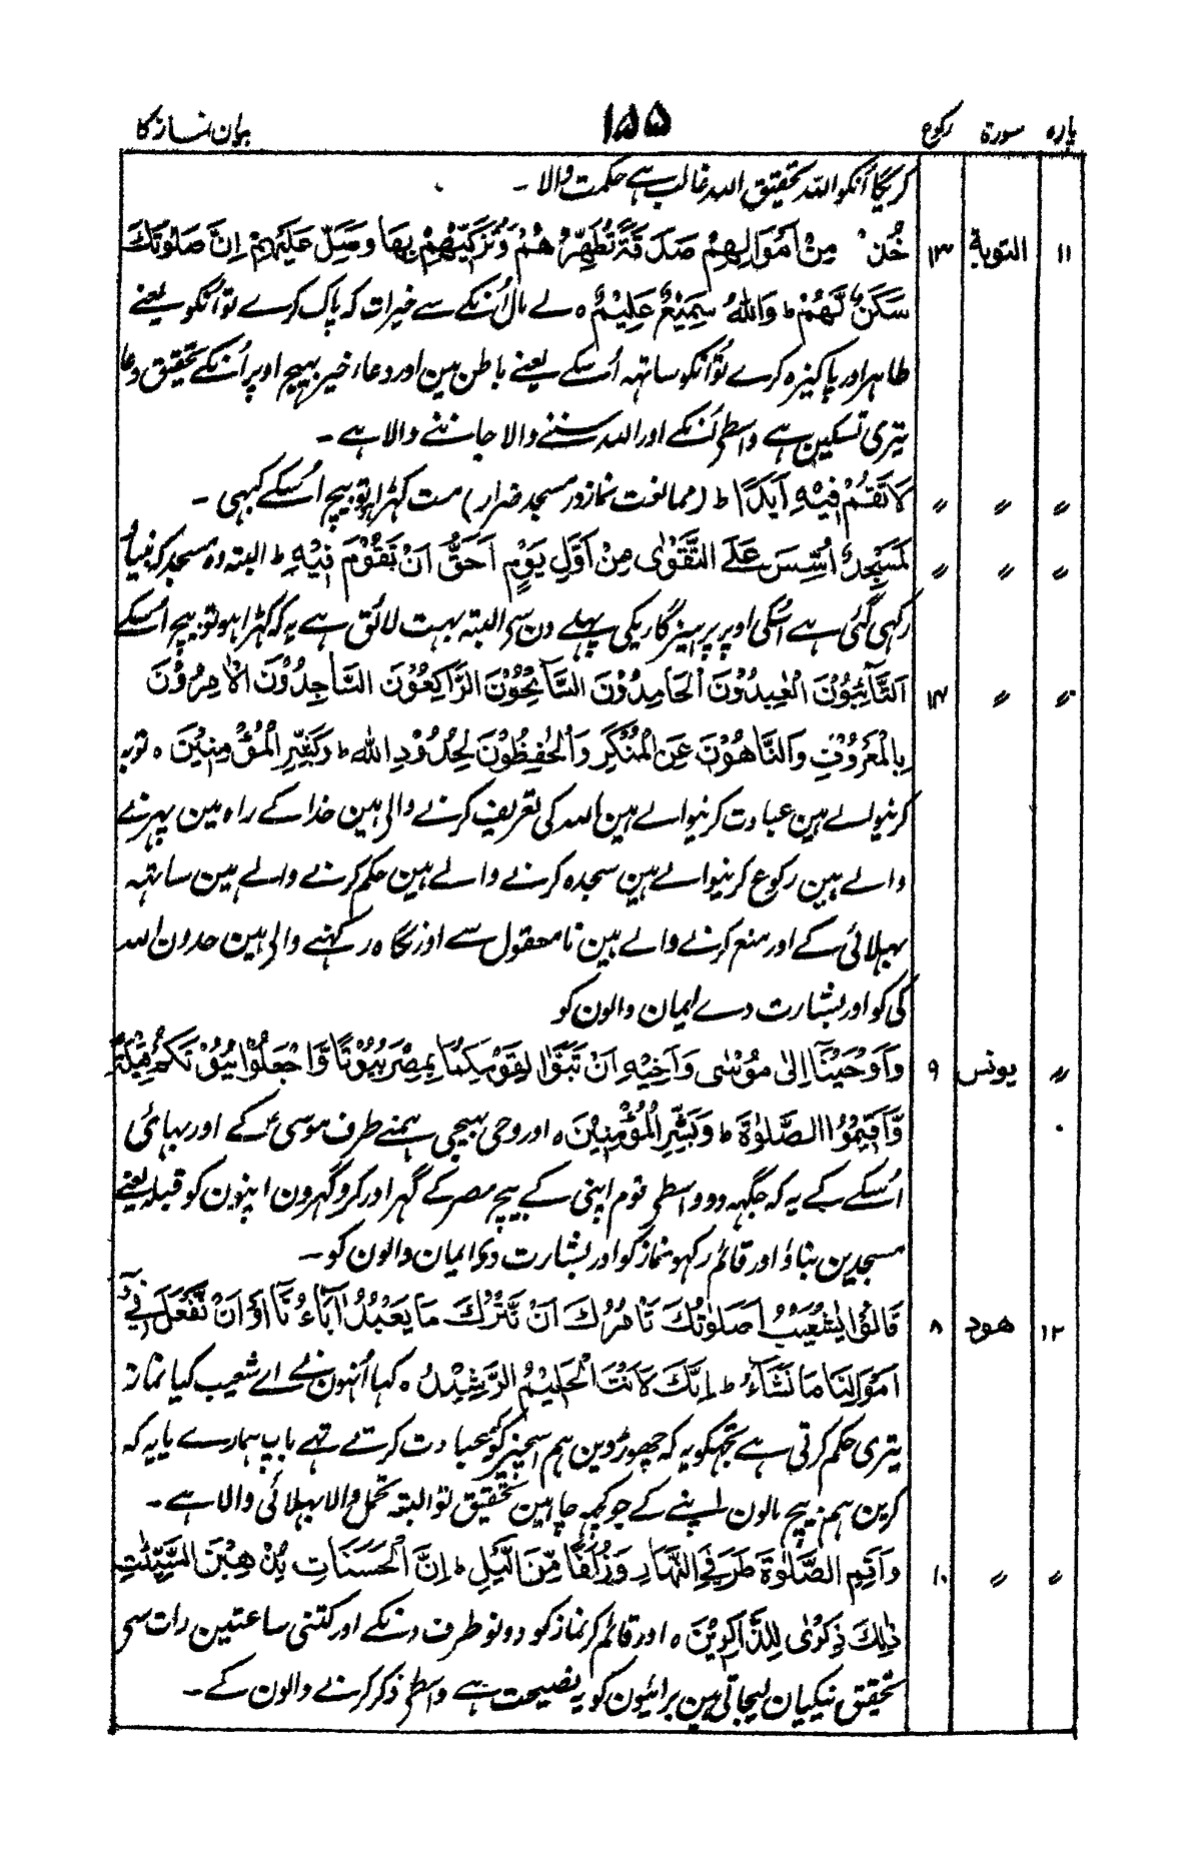 پارہ سورۃ رکوع ۱۵۵ بیان نماز کا
کریگا اُنکو اللہ تحقیق اللہ غالب ہے حکمت والا ۔
۱۱ التوبة ۱۳ خُذْ مِنْ اَمْوَالِهِمْ صَدَقَةً تُطَهِّرُهُمْ وَتُزَكِّيْهِمْ بِهَا وَصَلِّ عَلَيْهِمْ اِنَّ صَلٰوتَكَ
سَكَنٌ لَّهُمْ ط وَاللّٰهُ سَمِيْعٌ عَلِيْمٌ ہ لے مال اُنکے سے خیرات کہ پاک کرے تو اُنکو یعنے
طاہر اور پاکیزہ کرے تو اُنکو ساتہہ اُسکے یعنے باطن مین اور دعاء خیر بہیج اوپر اُنکے تحقیق دعا
تیری تسکین ہے واسطے اُنکے اور اللہ سننے والا جاننے والا ہے ۔
〃 〃 〃 لَا تَقُمْ فِيْهِ اَبَدًا ط (ممانعت نماز در مسجد ضرار) مت کہڑا ہو تو بیچ اُسکے کبہی ۔
〃 〃 〃 لَمَسْجِدٌ اُسِّسَ عَلَى التَّقْوٰى مِنْ اَوَّلِ يَوْمٍ اَحَقُّ اَنْ تَقُوْمَ فِيْهِ ط البتہ وہ مسجد کہ بنیاد
رکہی گئی ہے اُسکی اوپر پرہیزگاریکی پہلے دن سے البتہ بہت لائق ہے یہ کہ کہڑا ہو تو بیچ اُسکے
〃 〃 ۱۴ اَلتَّآئِبُوْنَ الْعٰبِدُوْنَ الْحَامِدُوْنَ السَّآئِحُوْنَ الرَّاكِعُوْنَ السَّاجِدُوْنَ الْاٰمِرُوْنَ
بِالْمَعْرُوْفِ وَالنَّاهُوْنَ عَنِ الْمُنْكَرِ وَالْحٰفِظُوْنَ لِحُدُوْدِ اللّٰه ط وَبَشِّرِ الْمُؤْمِنِيْنَ ہ توبہ
کرنیوالے ہین عبادت کرنیوالے ہین اللہ کی تعریف کرنے والے ہین خدا کے راہ مین پہرنے
والے ہین رکوع کرنیوالے ہین سجدہ کرنے والے ہین حکم کرنے والے ہین ساتہہ
بہلائی کے اور منع کرنے والے ہین نامعقول سے اور نگاہ رکہنے والے ہین حدون اللہ
کی کو اور بشارت دے ایمان والون کو
〃 یونس ۹ وَاَوْحَيْنَآ اِلٰى مُوْسٰى وَاَخِيْهِ اَنْ تَبَوَّاٰ لِقَوْمِكُمَا بِمِصْرَ بُيُوْتًا وَّاجْعَلُوْا بُيُوْتَكُمْ قِبْلَةً
وَّاَقِيْمُوا الصَّلٰوةَ ط وَبَشِّرِ الْمُؤْمِنِيْنَ ہ اور وحی بہیجی ہمنے طرف موسیٰ ؑ کے اور بہائی
اُسکے کے یہ کہ جگہہ دو واسطے قوم اپنی کے بیچ مصر کے گہر اور کرو گہرون اپنون کو قبلہ یعنے
مسجدین بناؤ اور قائم رکہو نماز کو اور بشارت دے ایمان والون کو ۔
۱۲ هود ۸ قَالُوْا يٰشُعَيْبُ اَصَلٰوتُكَ تَاْمُرُكَ اَنْ نَّتْرُكَ مَا يَعْبُدُ اٰبَآءُنَآ اَوْ اَنْ نَّفْعَلَ فِيْٓ
اَمْوَالِنَا مَا نَشَآءُ ط اِنَّكَ لَاَنْتَ الْحَلِيْمُ الرَّشِيْدُ ہ کہا اُنہون نے اے شعیب کیا نماز
تیری حکم کرتی ہے تجہکو یہ کہ چہوڑدین ہم اسچیز کو کہ عبادت کرتے تہے باپ ہمارے یا یہ کہ
کرین ہم بیچ مالون اپنے کے جو کچہہ چاہین تحقیق تو البتہ تحمل والا بہلائی والا ہے ۔
〃 〃 ۱۰ وَاَقِمِ الصَّلٰوةَ طَرَفَيِ النَّهَارِ وَزُلَفًا مِّنَ الَّيْلِ ط اِنَّ الْحَسَنَاتِ يُذْهِبْنَ السَّيِّئٰتِ
ذٰلِكَ ذِكْرٰى لِلذَّاكِرِيْنَ ہ اور قائم کر نماز کو دونو طرف دنکے اور کتنی ساعتین رات سے
تحقیق نیکیان لیجاتی ہین برائیون کو یہ نصیحت ہے واسطے ذکر کرنے والون کے ۔